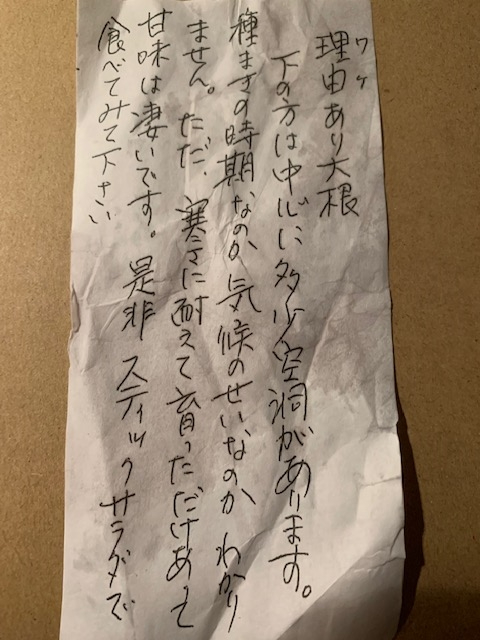 ワケ
理由あり大根
下の方は中心に多少空洞があります。
種まきの時期なのか気候のせいなのかわかり
ません。ただ、寒さに耐えて育っただけあって
甘味は凄いです。是非スティックサラダで
食べてみて下さい